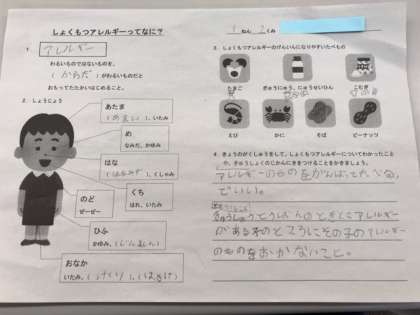 しょくもつアレルギーってなに？
1. アレルギー
わるいものではないものを、
(からだ)がわるいものだと
おもってたたかいはじめること。
2. しょうじょう
あたま
(めまい)、いたみ
め
なみだ、かゆみ
はな
(はなみず)、くしゃみ
くち
はれ、いたみ
のど
ゼーゼー
ひふ
かゆみ、(じんましん)
おなか
いたみ、(げり)、(はきけ)
1ねん 2くみ
3. しょくもつアレルギーのげんいんになりやすいたべもの
たまご
ぎゅうにゅう、にゅうせいひん
こむぎ
えび
かに
そば
ピーナッツ
4. きょうのがくしゅうをして、しょくもつアレルギーについてわかったこと
や、きゅうしょくのじかんにきをつけることをかきましょう。
アレルギーのものをがんばってたべる、
でいい。
きゅうしょくとうばんのときにアレルギー
がある子のところにその子のアレルギー
のものをおかないこと。